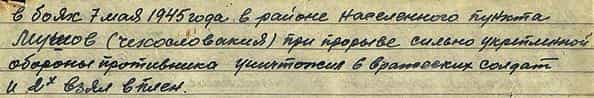 в боях 7 мая 1945 года в районе населенного пункта
Мушов (чехословакия) при прорыве сильно укрепленной
обороны противника уничтожил 6 вражеских солдат
и 2х взял в плен.